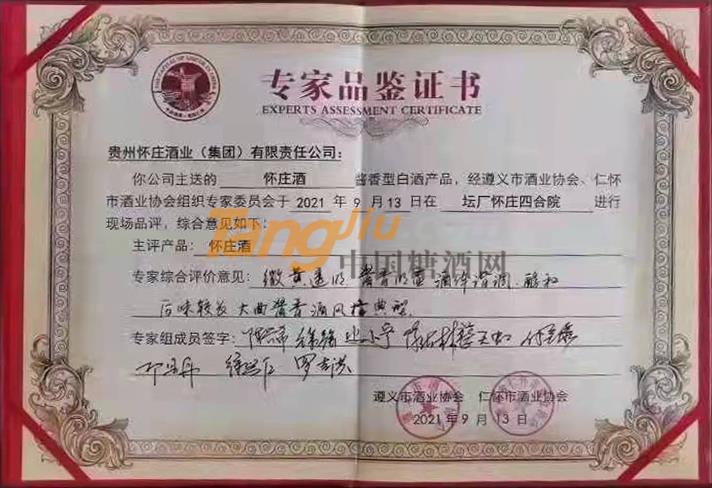 专家品鉴证书
EXPERTS ASSESSMENT CERTIFICATE
贵州怀庄酒业（集团）有限责任公司：
你公司主送的 怀庄酒 酱香型白酒产品，经遵义市酒业协会、仁怀
市酒业协会组织专家委员会于 2021 年 9 月 13 日在 坛厂怀庄四合院 进行
现场品评，综合意见如下：
主评产品：怀庄酒
Tangjiu
中国糖酒网
专家综合评价意见：微黄透明 酱香明显 酒体谐调 醇和
后味较长 大曲酱香酒风格典型
专家组成员签字：
遵义市酒业协会 仁怀市酒业协会
2021 年 9 月 13 日